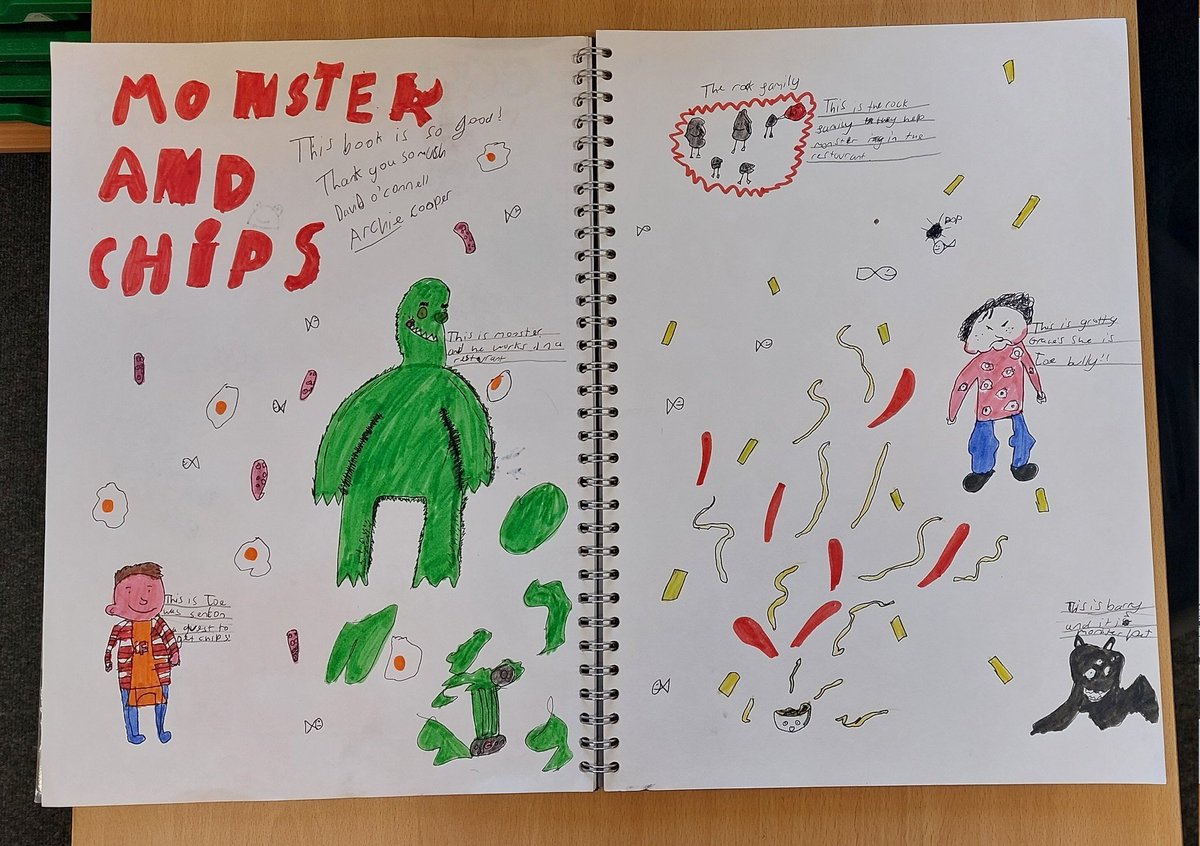 MONSTER
AND
CHIPS
This book is so good!
Thank you so mush
David o'connell
Archie cooper
This is monster
and he works in a
restaurant
This is Joe
was sent on
quest to
get chips!
The rock family
This is the rock
family they help
monster in the
restaurant
POP
This is grotty
Grace she is
Joe bully"
This is barry
and it is
monster pet